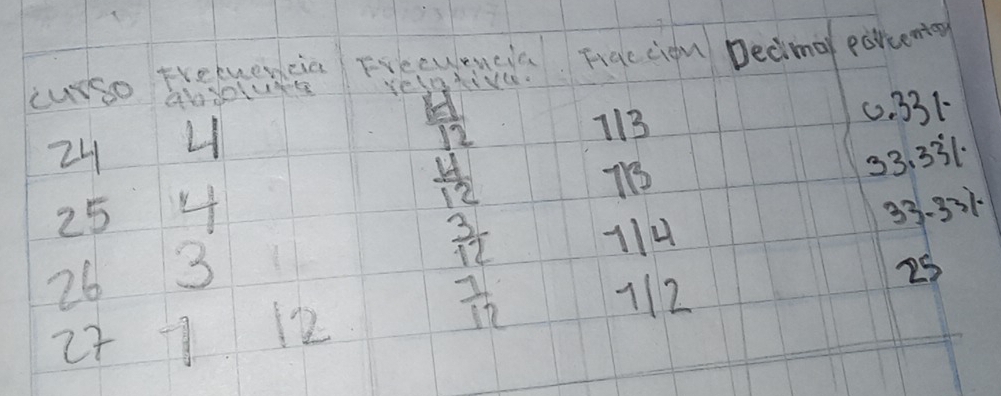 curso Frecuencia absoluta Frecuencia relativa. Fraccion Decimal porcentaj
24 4 4/12 1/3 0.33%
25 4 4/12 1/3 33.33%
26 3 3/12 1/4 33.33%
27 1 12 1/12 1/2 25